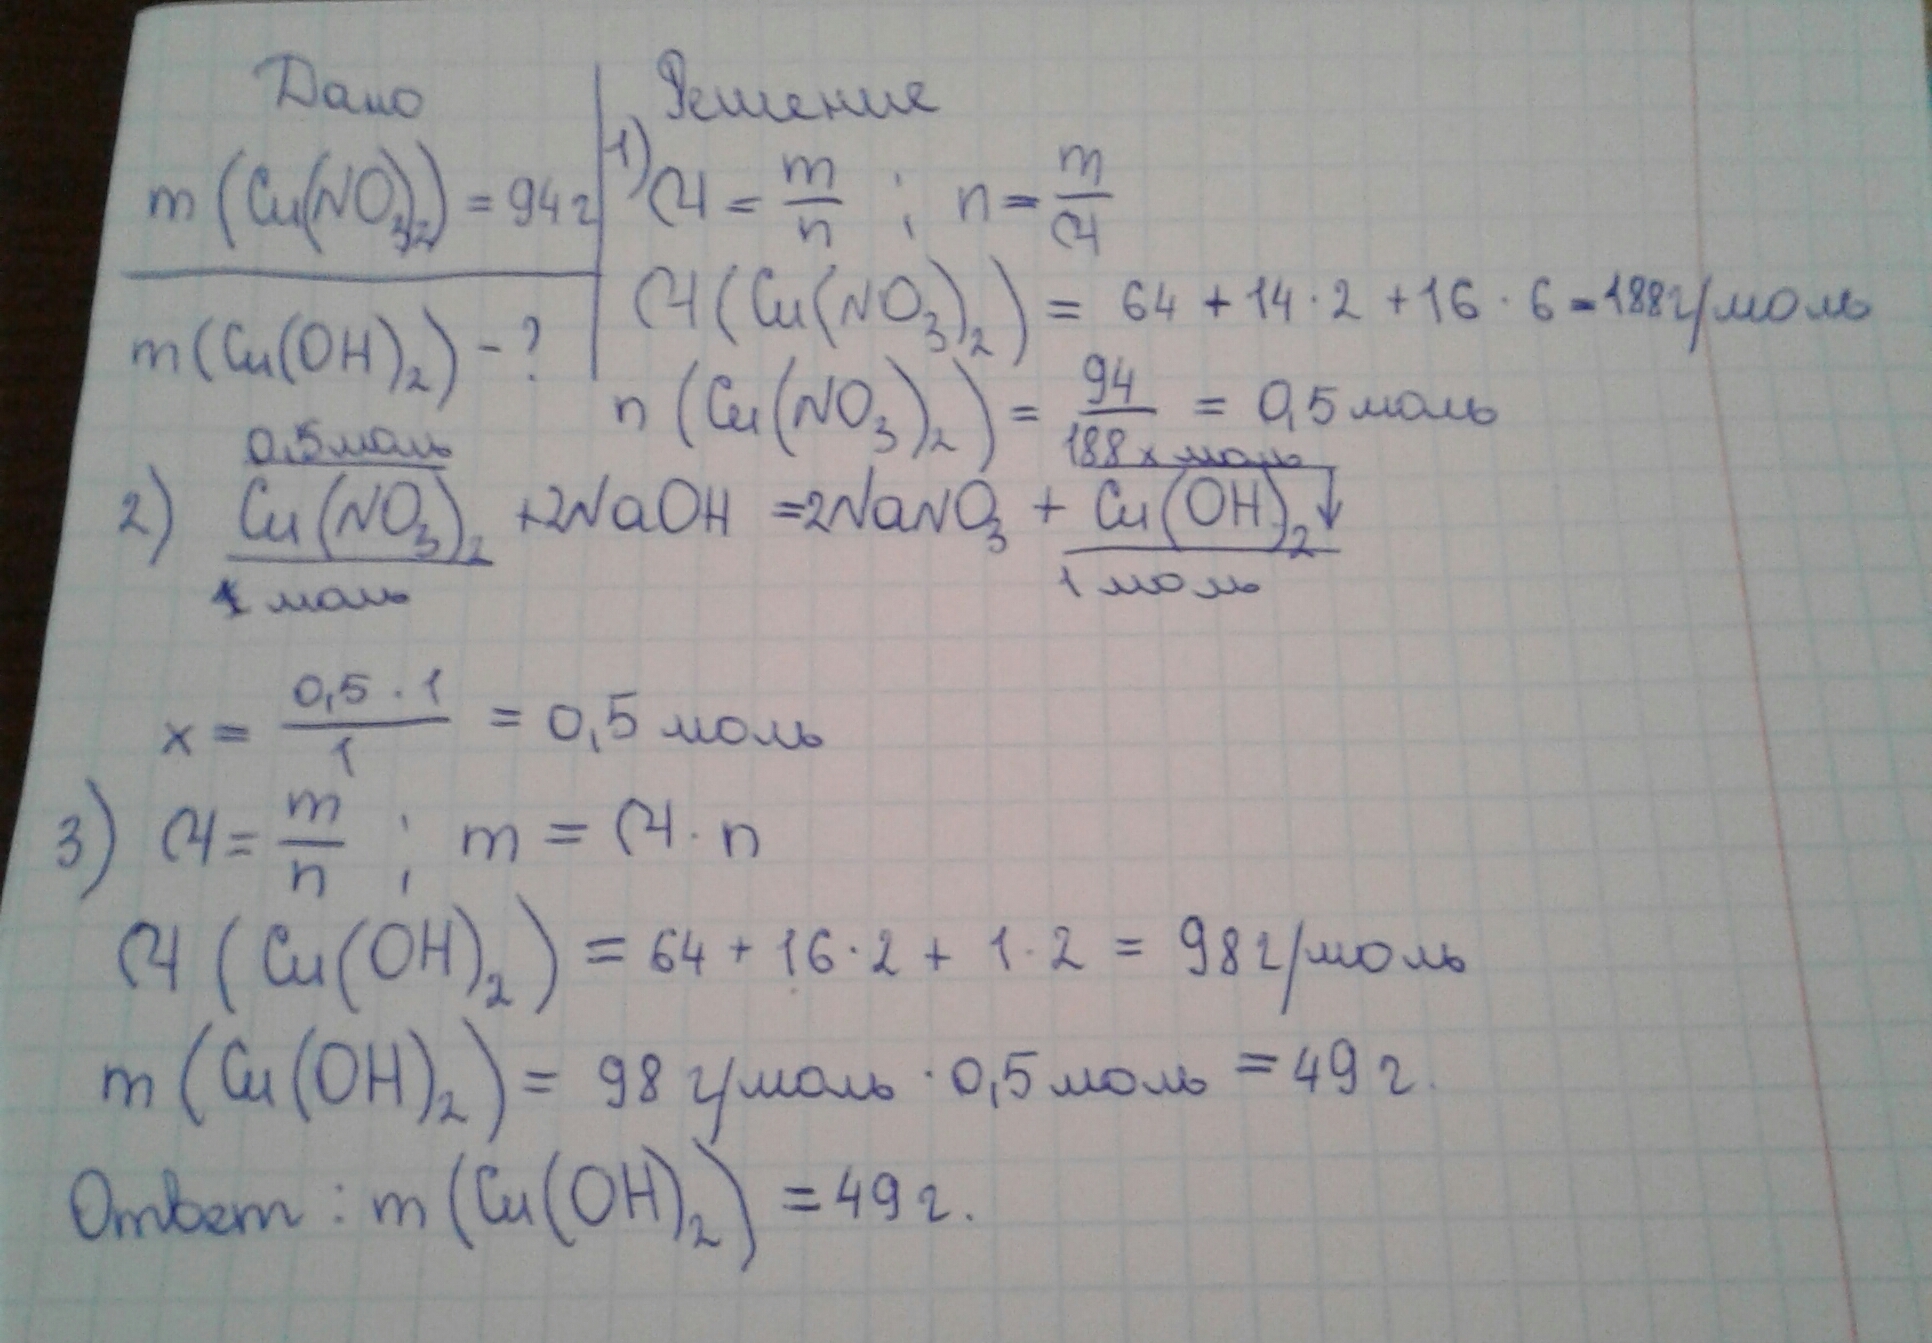 Дано
m(Cu(NO₃)₂) = 94 г
m(Cu(OH)₂) - ?
Решение
1) M = m/n ; n = m/M
M(Cu(NO₃)₂) = 64 + 14 · 2 + 16 · 6 = 188 г/моль
n(Cu(NO₃)₂) = 94/188 = 0,5 моль
0,5 моль x моль
2) Cu(NO₃)₂ + 2NaOH = 2NaNO₃ + Cu(OH)₂↓
1 моль 1 моль
x = 0,5 · 1/1 = 0,5 моль
3) M = m/n ; m = M · n
M(Cu(OH)₂) = 64 + 16 · 2 + 1 · 2 = 98 г/моль
m(Cu(OH)₂) = 98 г/моль · 0,5 моль = 49 г.
Ответ : m(Cu(OH)₂) = 49 г.